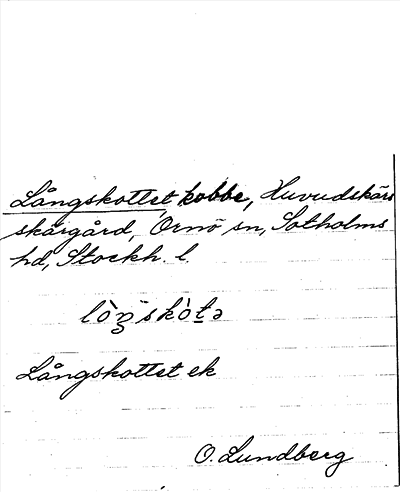 Långskottet kobbe, Huvudskärs
skärgård, Ornö sn, Sotholms
hd, Stockh. l.
lò̀ŋskòtə
Långskottet ek
O. Lundberg